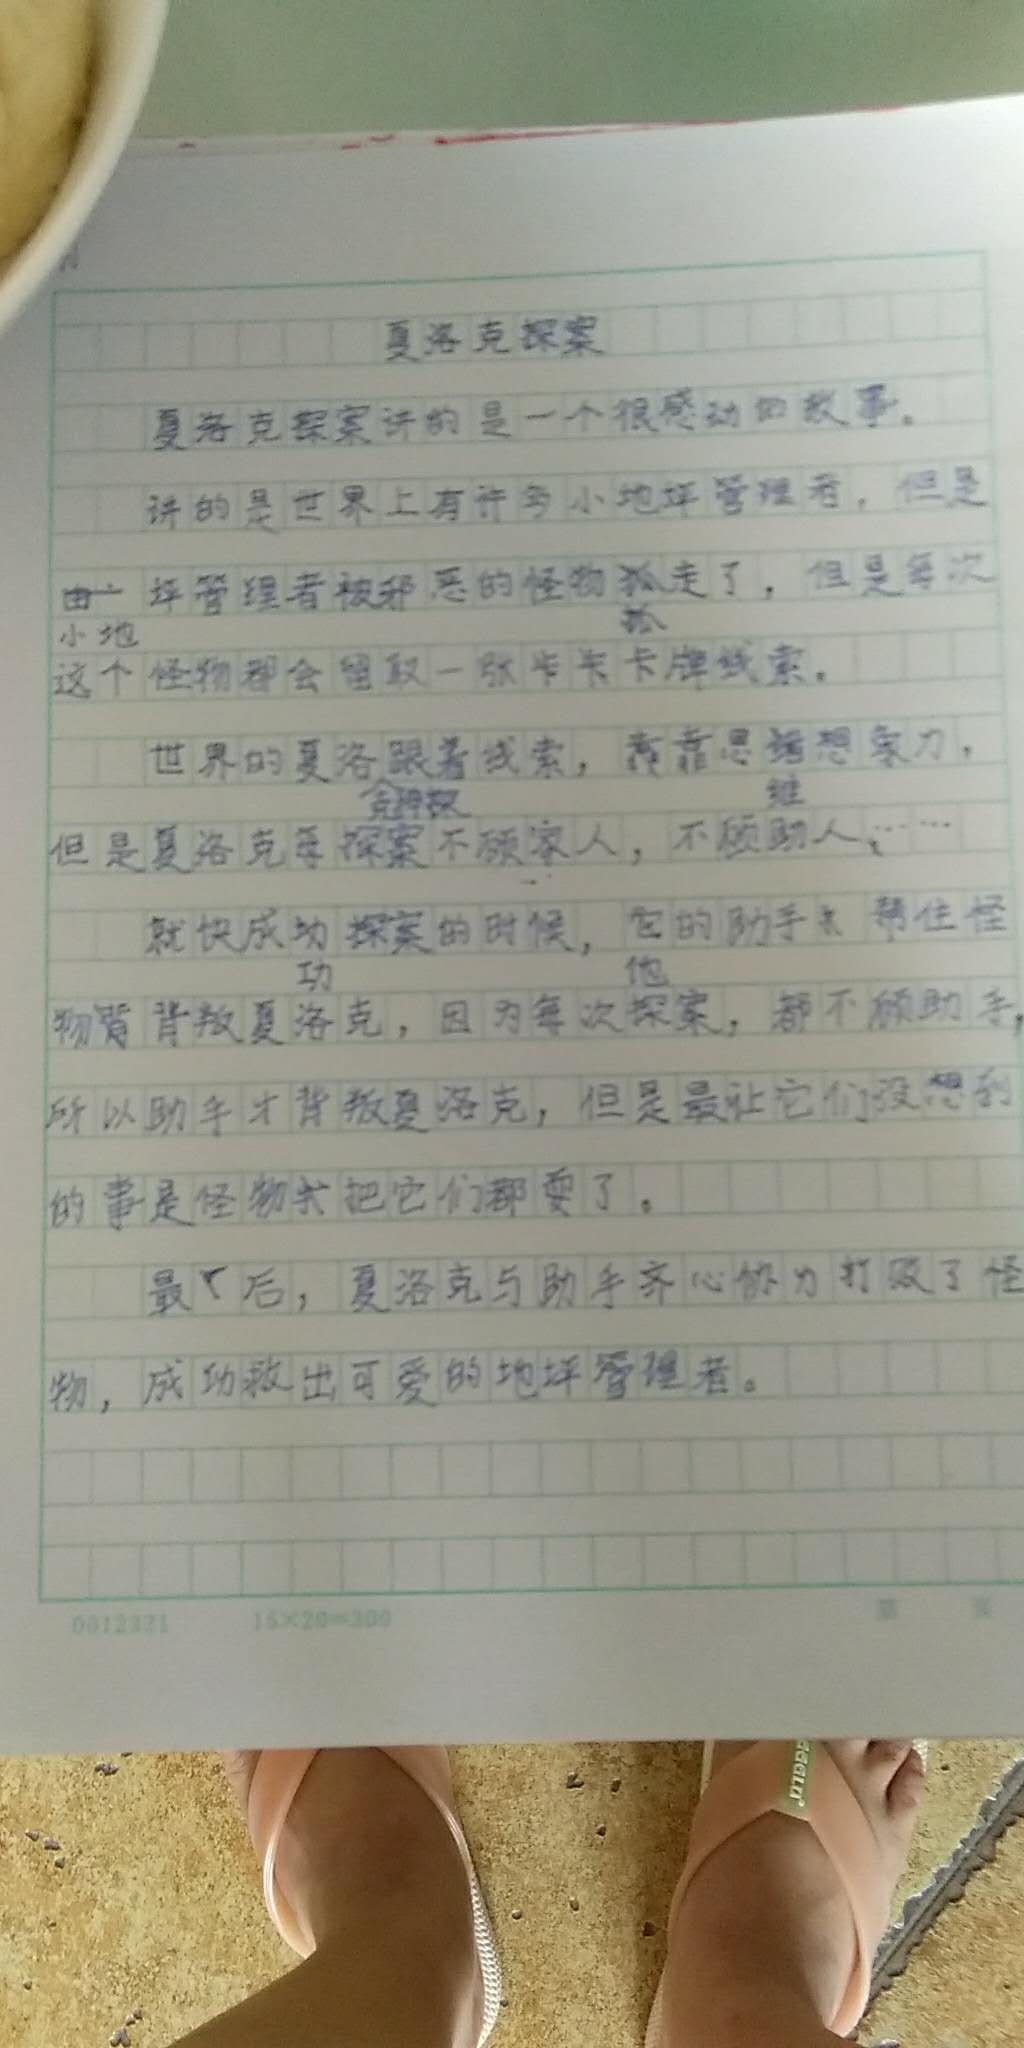 夏洛克探案
夏洛克探案讲的是一个很感动的故事。
讲的是世界上有许多小地坪管理者,但是
坪管理者被邪恶的怪物抓走了,但是每次
小地
抓
这个怪物都会留取一张卡卡卡牌线索。
世界的夏洛跟着线索,靠靠思维想象力,
克神探
维
但是夏洛克每探案不顾家人,不顾助人,……
就快成功探案的时候,它的助手 帮住怪
功
他
物背背叛夏洛克,因为每次探案,都不顾助手,
所以助手才背叛夏洛克,但是最让它们没想到
的事是怪物 把它们都耍了。
最 后,夏洛克与助手齐心协力打败了怪
物,成功救出可爱的地坪管理者。
0012321 15×20=300
第 页